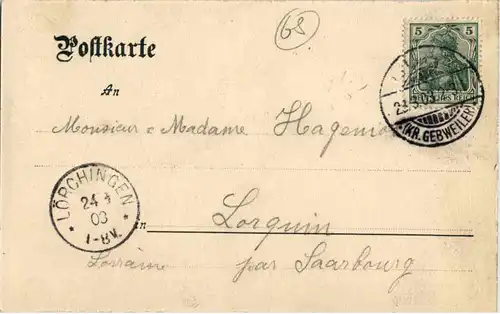 68
5 5
Postkarte
An
Monsieur e Madame
(KR. GEBWEILER)
LÖRCHINGEN
24 3
03
1-8V.
in
Lorquin
Lorraine par Saarbourg